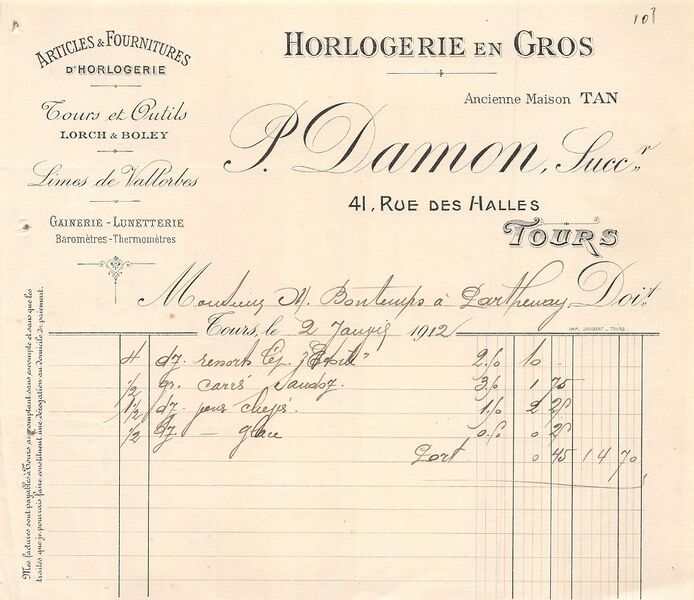 101
ARTICLES & FOURNITURES
D'HORLOGERIE
Tours et Outils
LORCH & BOLEY
Limes de Vallorbes
GAINERIE - LUNETTERIE
Baromètres - Thermomètres
HORLOGERIE EN GROS
Ancienne Maison TAN
P. Damon, Succr
41, RUE DES HALLES
TOURS
Monsieur A. Bontemps à Parthenay Doit
Tours, le 2 Janvier 1912
IMP. JOUBERT - TOURS
4 dz. ressorts 10
1/2 gr. carrés Sandoz. 1 75
1 1/2 dz. 2 25
1/2 dz. — glace 0 25
Port 0 45 14 70
Mes factures sont payables à Tours au comptant sans escompte et sans que les
traites que je pourrais faire constituent une dérogation au domicile de paiement.